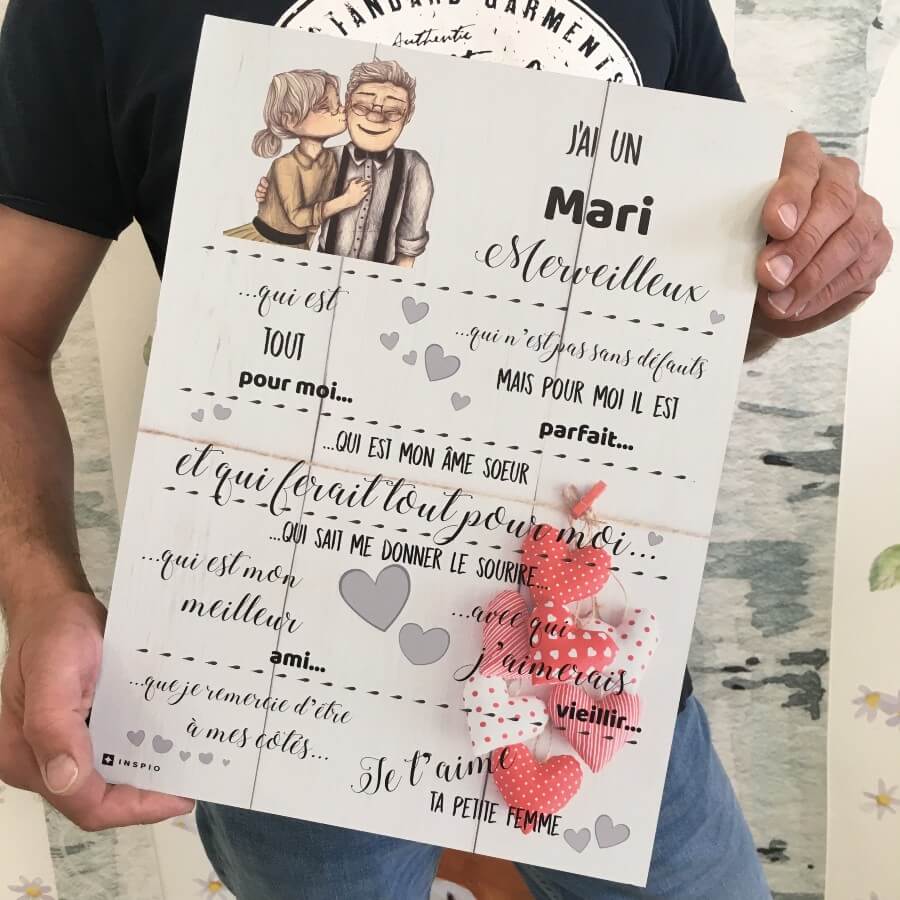 STANDARD GARMENTS
Authentic
J'AI UN
Mari
Merveilleux
...qui est
TOUT
pour moi...
...qui n'est pas sans défauts
MAIS POUR MOI IL EST
parfait...
...QUI EST MON ÂME SOEUR
et qui ferait tout pour moi...
...QUI SAIT ME DONNER LE SOURIRE...
...qui est mon
meilleur
ami...
...avec qui
j'aimerais
vieillir...
...que je remercie d'être
à mes côtés...
Je t'aime
TA PETITE FEMME
INSPIO